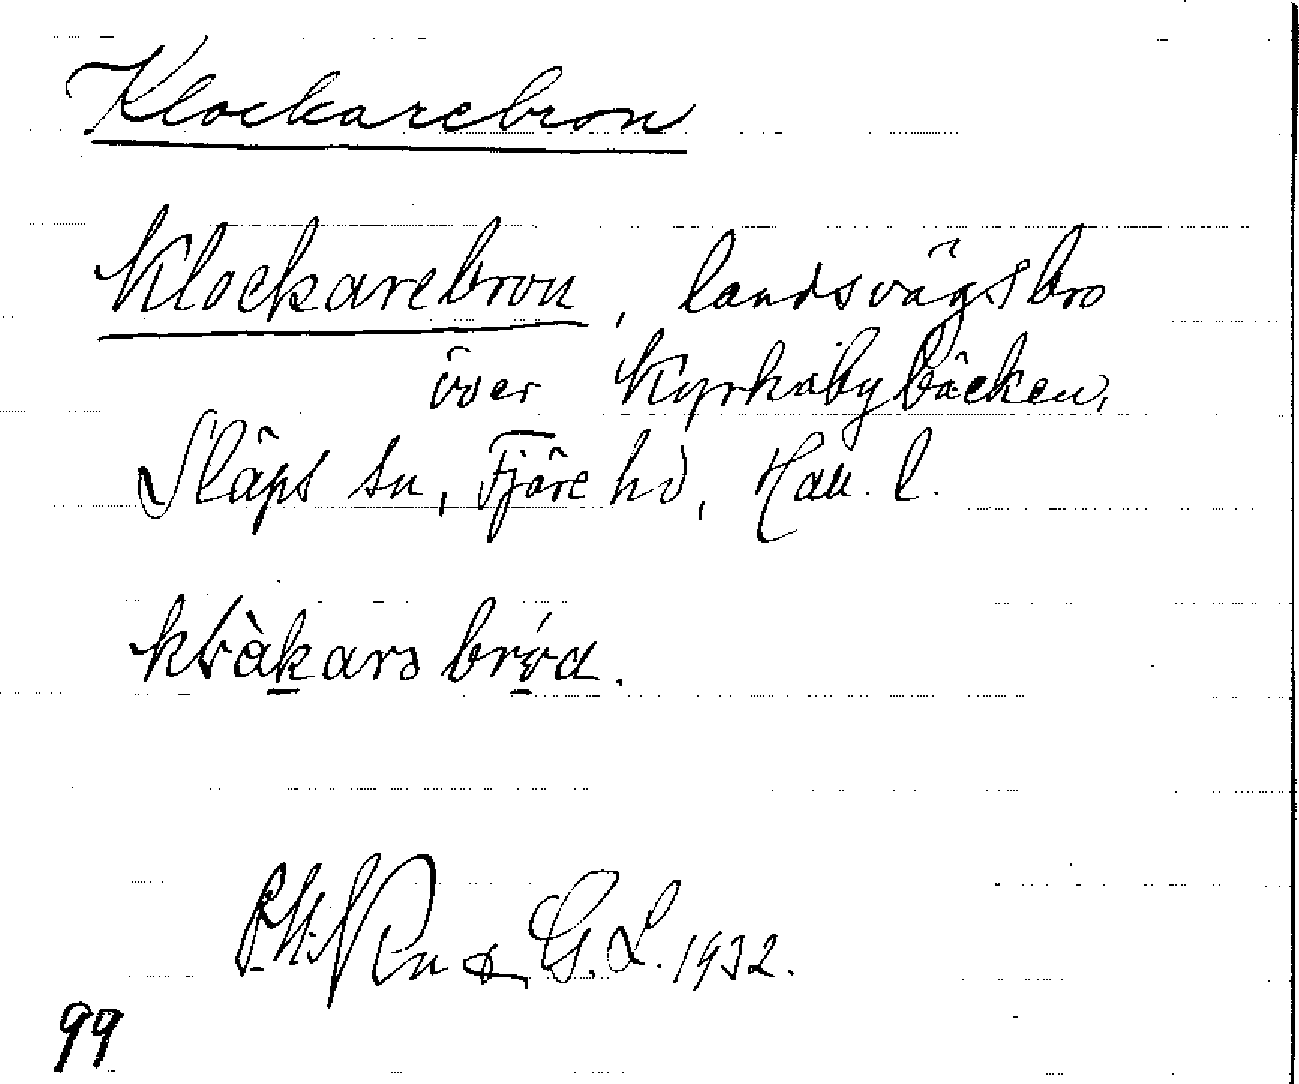 Klockarebron
Klockarebron, landsvägsbro
över Kyrkobybäcken,
Släps sn, Fjäre hd, Hall. l.
G. L. 1932.
99